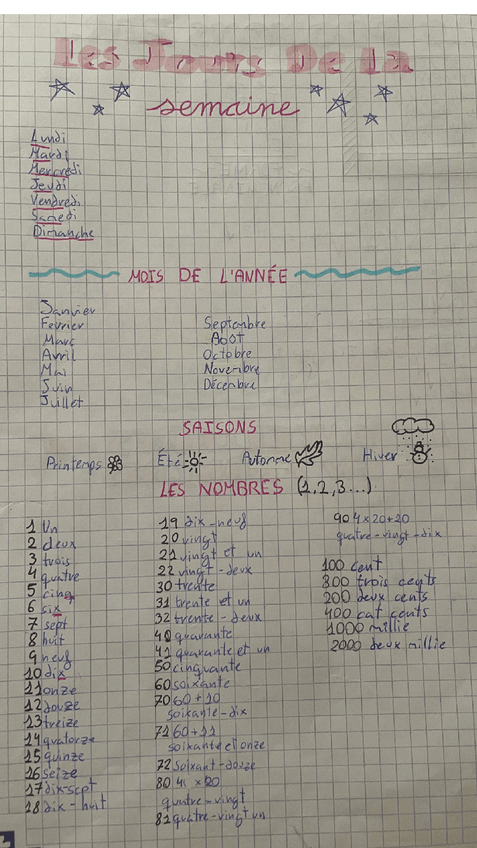 Les Jours De la
semaine
Lundi
Mardi
Mercredi
Jeudi
Vendredi
Samedi
Dimanche
MOIS DE L'ANNÉE
Janvier
Fevrier
Mars
Avril
Mai
Juin
Juillet
Septembre
Août
Octobre
Novembre
Décembre
SAISONS
Printemps Été Automne Hiver
LES NOMBRES (1,2,3...)
1 Un
2 deux
3 trois
4 quatre
5 cinq
6 six
7 sept
8 huit
9 neuf
10 dix
11 onze
12 douze
13 treize
14 quatorze
15 quinze
16 seize
17 dix-sept
18 dix-huit
19 dix-neuf
20 vingt
21 vingt et un
22 vingt-deux
30 trente
31 trente et un
32 trente-deux
40 quarante
41 quarante et un
50 cinquante
60 soixante
70 60+10
soixante-dix
71 60+11
soixante et onze
72 soixant-douze
80 4 x 20
quatre-vingt
81 quatre-vingt un
90 4x20+20
quatre-vingt-dix
100 cent
800 trois cents
200 deux cents
400 cat cents
1000 millie
2000 deux millie